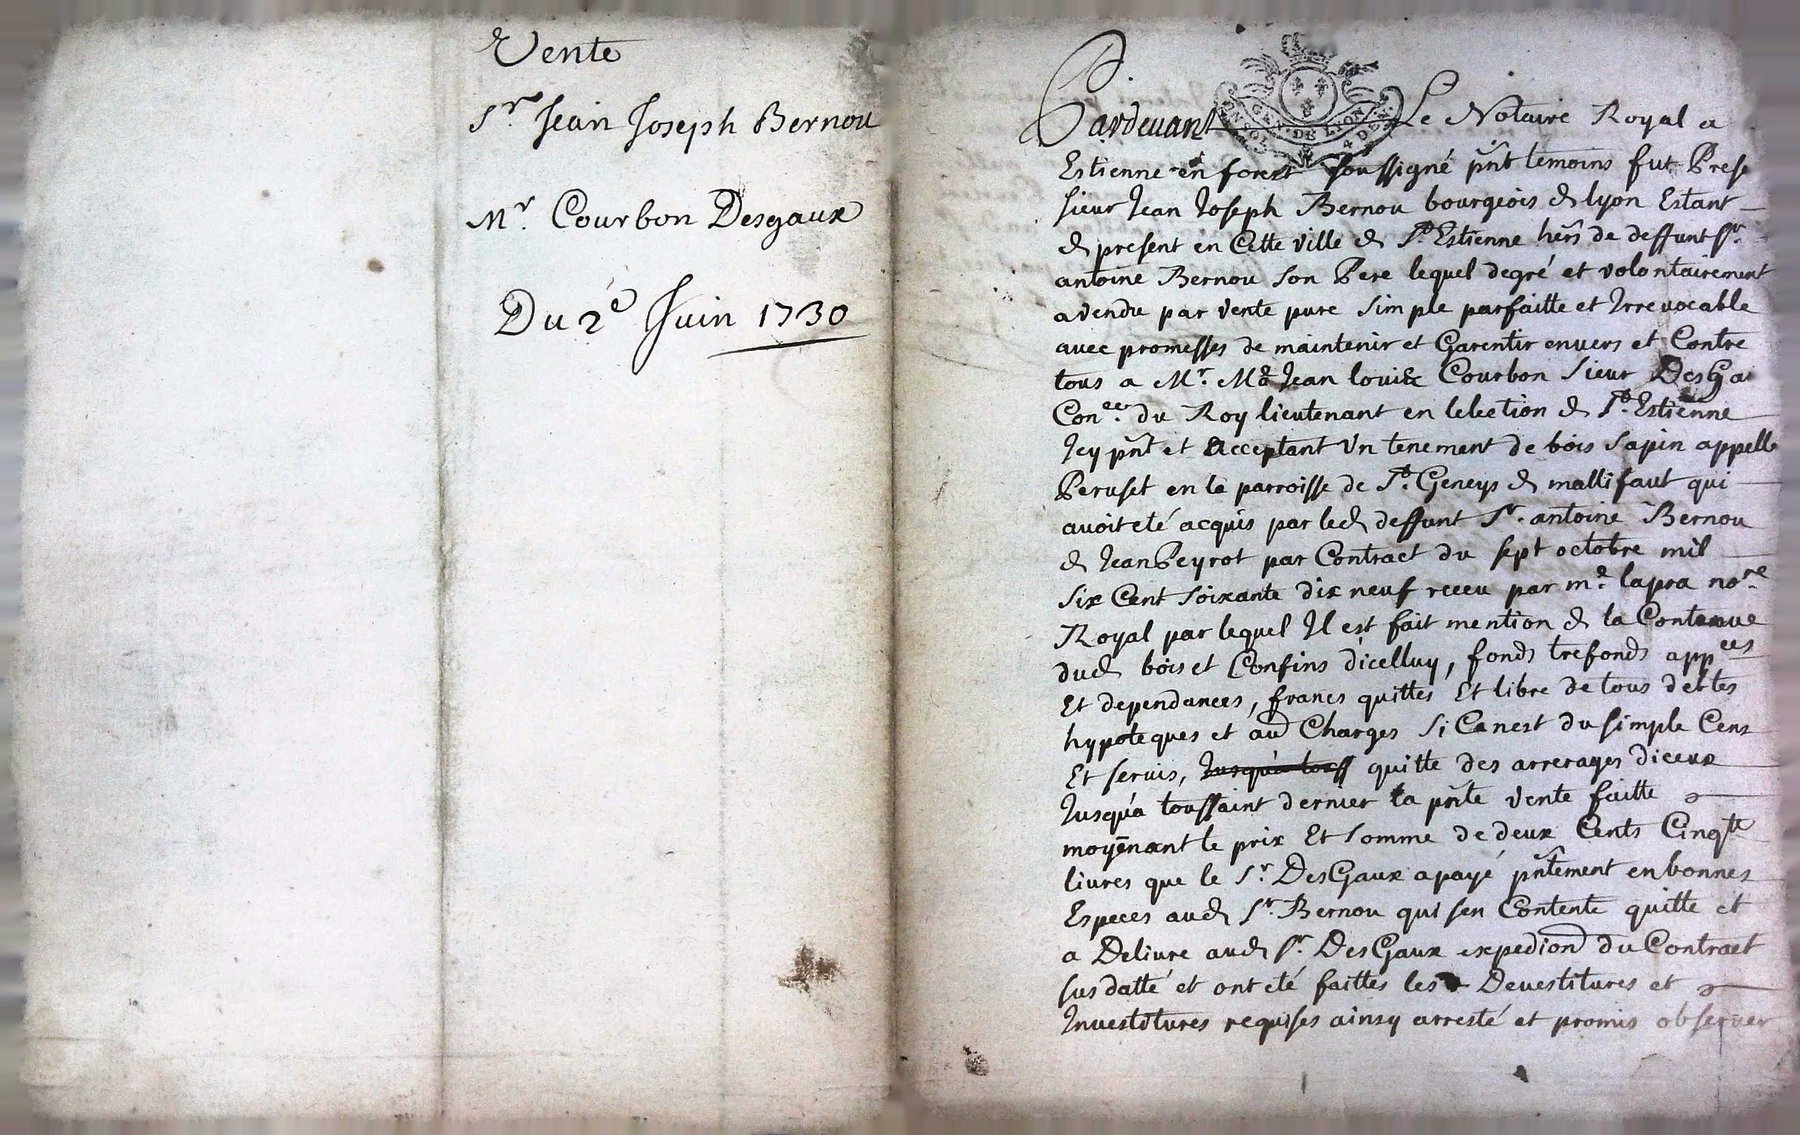 Vente
Sr. Jean Joseph Bernou
Mr. Courbon Desgaux
Du 2e Juin 1730
GEN. DE LYON
Pardevant Le Notaire Royal a
Estienne en forest soussigné pnt temoins fut Prese
sieur Jean Joseph Bernou bourgeois de lyon Estant
de present en Cette ville de St. Estienne hers de deffunt Sr.
antoine Bernou son Pere lequel degré et volontairement
a vendu par vente pure simple parfaitte et Irrevocable
avec promesses de maintenir et Garentir envers et Contre
tous a Mr. Me Jean louise Courbon sieur DesGa
Coner du Roy lieutenant en lelection de St. Estienne
Icy pnt et acceptant Un tenement de bois sapin appellé
Peruset en la parroisse de St. Geneys de mallifaut qui
avoit eté acquis par led deffunt Sr. antoine Bernou
de Jean Peyrot par Contract du sept octobre mil
six Cent soixante dix neuf receu par me. lapra nore
Royal par lequel Il est fait mention de la Contenue
dud bois et Confins dicelluy, fonds trefonds appces
Et dependances, francs quittes Et libre de tous debtes
hypoteques et au Charges si Ce nest du simple Cens
Et servis, Jusqu'a touss quitte des arrerages diceux
Jusqu'a toussaint dernier la pnte vente faitte
moyenant le prix Et somme de deux Cents Cinqte
livres que le Sr. DesGaux a payé pntement en bonnes
Especes aud Sr. Bernou qui sen Contente quitte et
a Delivre aud Sr. DesGaux expedion du Contract
sus datté et ont eté faittes les Devestitures et
Investitures requises ainsy arresté et promis observer